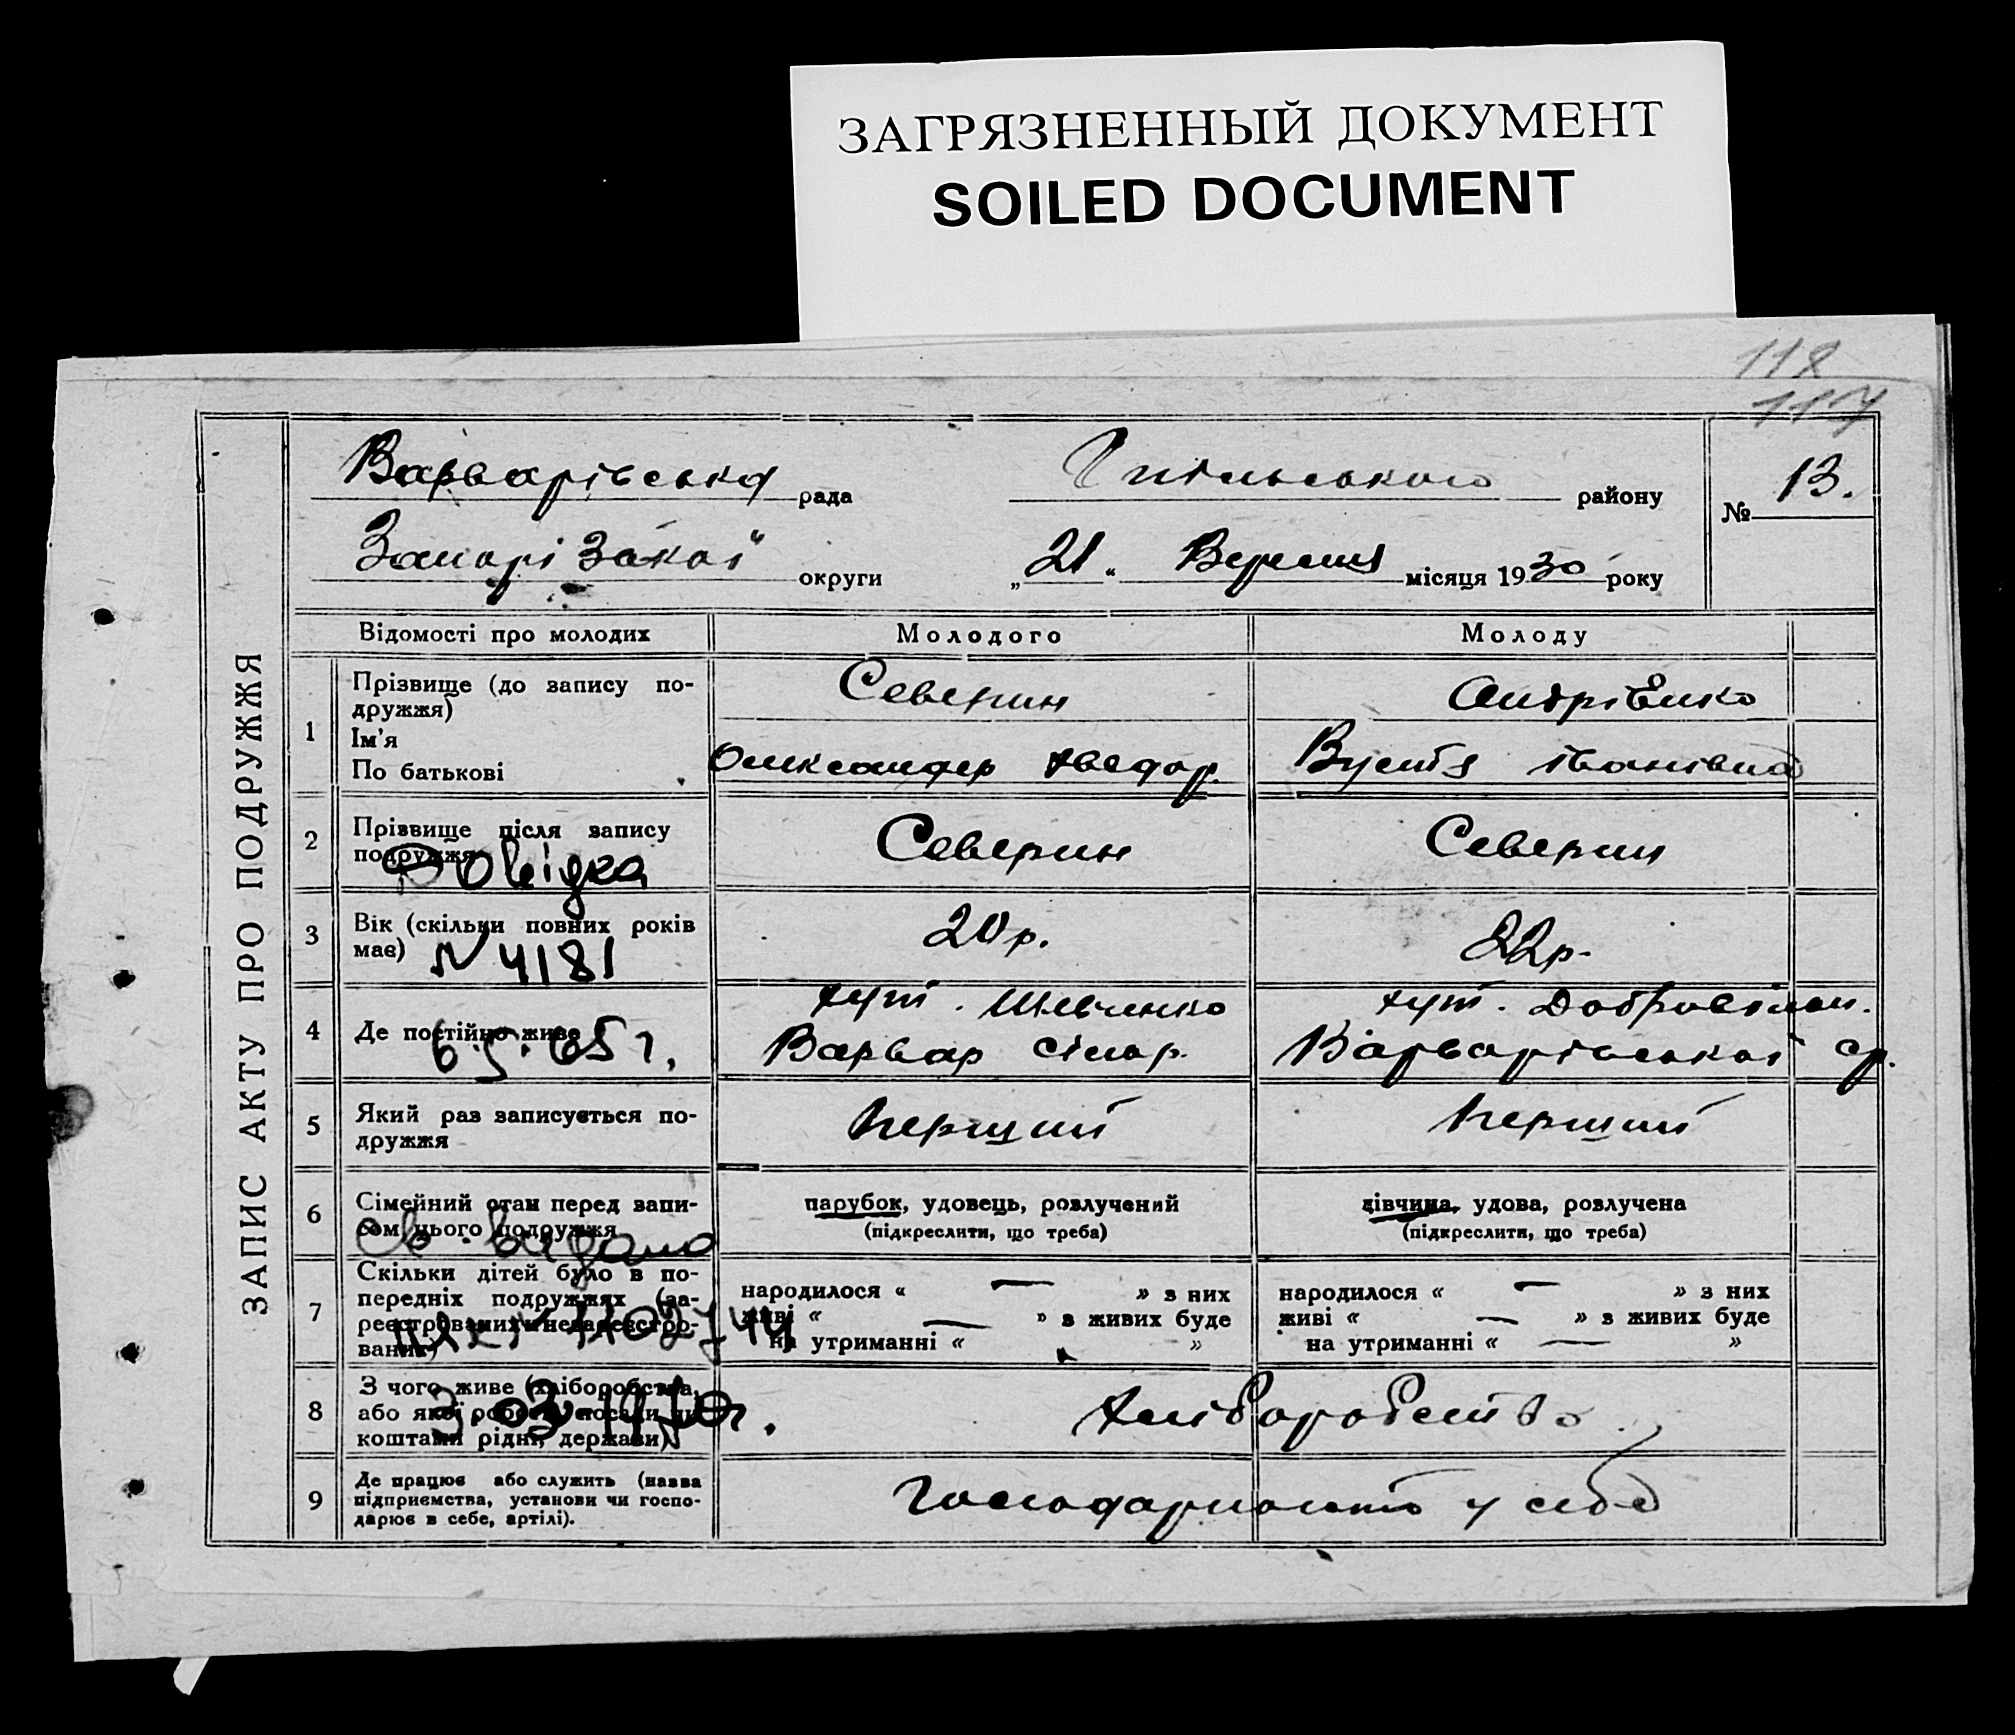 ЗАГРЯЗНЕННЫЙ ДОКУМЕНТ
SOILED DOCUMENT
118
117
ЗАПИС АКТУ ПРО ПОДРУЖЖЯ
Варварівська рада району
№ 13.
Запорізької округи „21“ Вересня місяця 1930 року
Відомості про молодих Молодого Молоду
1 Прізвище (до запису по-
дружжя)
Северин Андрієнко
Ім'я
По батькові
Олександер Хведор. Іванівна
2 Прізвище після запису
подружжя
Северин Северин
Довідка
3 Вік (скільки повних років
має)
20 р. 22 р.
N 4181
4 Де постійно живе
хут. Шевченко
Варвар сільр.
хут. Добровільн.
Варварівської ср.
6.5.65 г.
5 Який раз записується по-
дружжя
Перший Перший
6 Сімейний стан перед запи-
сом цього подружжя
парубок, удовець, розлучений
(підкреслити, що треба)
дівчина, удова, розлучена
(підкреслити, що треба)
Св. видано
7 Скільки дітей було в по-
передніх подружжях (за-
реєстрованих і незареєстро-
ваних)
народилося « — » з них
живі « — » з живих буде
на утриманні « »
народилося « — » з них
живі « — » з живих буде
на утриманні « — »
8 З чого живе (хліборобства,
або якої роботи, посади чи
коштами рідні, держави)
Хліборобство
9 Де працює або служить (назва
підприємства, установи чи госпо-
дарює в себе, артілі).
у себе